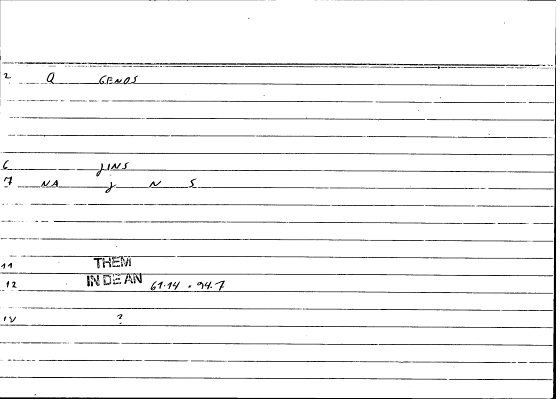 2 Q GENOS
6 JINS
7 NA J N S
11 THEM
12 IN DE AN 61.14 . 94.7
IV ?